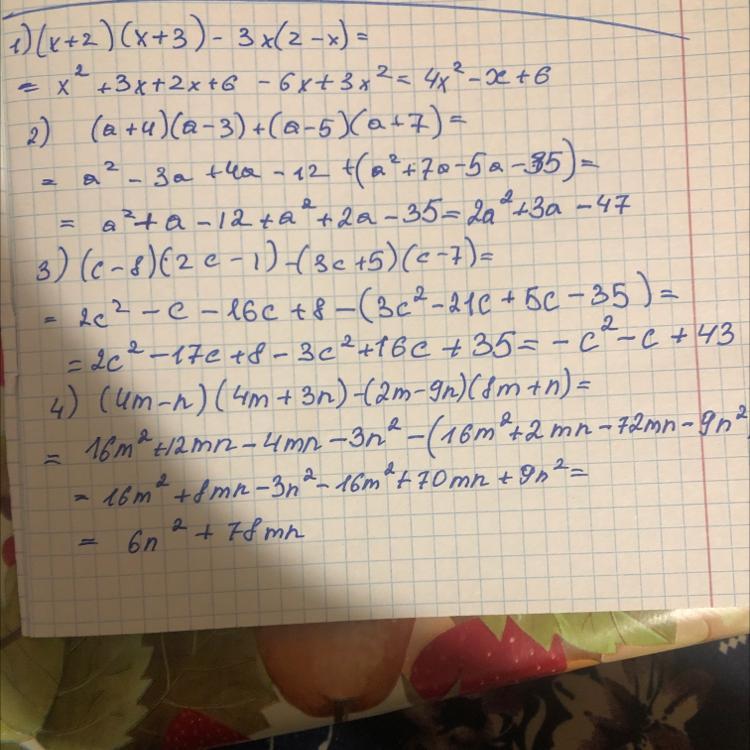 1) (x+2)(x+3) - 3x(2-x) =
= x² + 3x + 2x + 6 - 6x + 3x² = 4x² - x + 6
2) (a+4)(a-3) + (a-5)(a+7) =
= a² - 3a + 4a - 12 + (a² + 7a - 5a - 35) =
= a² + a - 12 + a² + 2a - 35 = 2a² + 3a - 47
3) (c-8)(2c-1) - (3c+5)(c-7) =
= 2c² - c - 16c + 8 - (3c² - 21c + 5c - 35) =
= 2c² - 17c + 8 - 3c² + 16c + 35 = - c² - c + 43
4) (4m-n)(4m+3n) - (2m-9n)(8m+n) =
= 16m² + 12mn - 4mn - 3n² - (16m² + 2mn - 72mn - 9n²)
= 16m² + 8mn - 3n² - 16m² + 70mn + 9n² =
= 6n² + 78mn